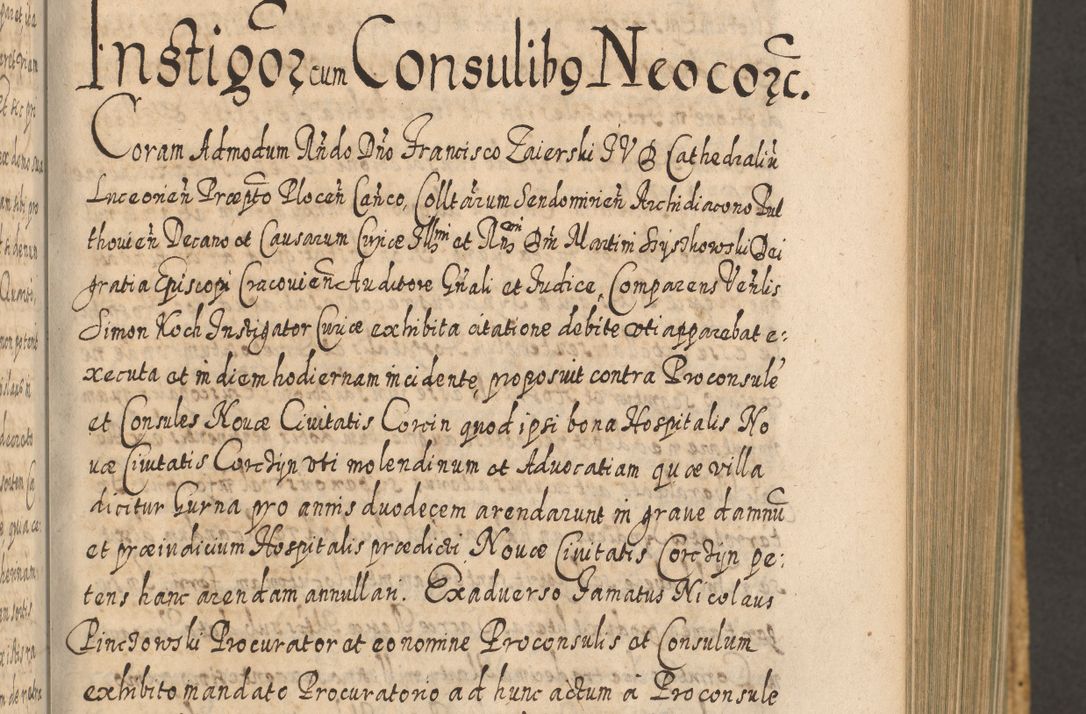 Instigōꝝ cum Consulib9 Neocorꝝc.
Coram Admodum Rñdo Dño Francisco Zaierski IVD Cathedraliũ
Luceorień Præpto Ploceń Cańco, Colltãrum Sendomirień Archidiacono Pul
thouień Decano et Causarum Curiæ Illmi et Rñ Dñi Martini Szyszkowski Dei
gratia Episcopi Cracouień Auditore Gñali et Judice, Comparens Veñlis
Simon Koch Instigator Curiæ exhibita citatione debite uti apparebat e:
xecuta et in diem hodiernam incidente, proposuit contra Proconsulē
et Consules Nouæ Ciuitatis Corcin quod ipsi bona Hospitalis No
uæ Ciuitatis Corczyn uti molendinum et Aduocatiam quæ villa
dicitur Gurna pro annis duodecem arendarunt in graue damnũ
et præiudicium Hospitalis prædicti Nouæ Ciuitatis Corczyn pe:
tens hanc arendam annullari. Ex aduerso Famatus Nicolaus
Pinczowski Procurator et eo nomine Proconsulis et Consulum
exhibito mandato Procuratorio ad hunc actum a Proconsule